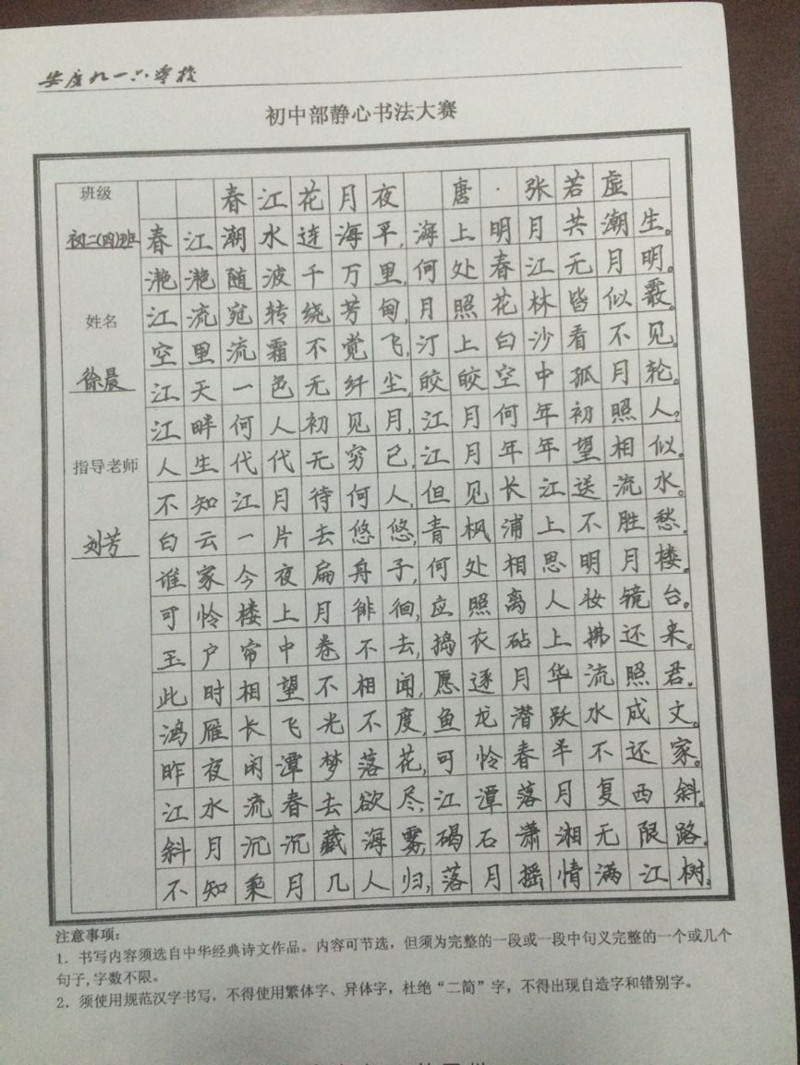 安庆九一六学校
初中部静心书法大赛
班级
初二(四)班
姓名
徐晨
指导老师
刘芳
春江花月夜 唐·张若虚
春江潮水连海平,海上明月共潮生。
滟滟随波千万里,何处春江无月明。
江流宛转绕芳甸,月照花林皆似霰。
空里流霜不觉飞,汀上白沙看不见。
江天一色无纤尘,皎皎空中孤月轮。
江畔何人初见月,江月何年初照人?
人生代代无穷已,江月年年望相似。
不知江月待何人,但见长江送流水。
白云一片去悠悠,青枫浦上不胜愁。
谁家今夜扁舟子,何处相思明月楼。
可怜楼上月徘徊,应照离人妆镜台。
玉户帘中卷不去,捣衣砧上拂还来。
此时相望不相闻,愿逐月华流照君。
鸿雁长飞光不度,鱼龙潜跃水成文。
昨夜闲潭梦落花,可怜春半不还家。
江水流春去欲尽,江潭落月复西斜。
斜月沉沉藏海雾,碣石潇湘无限路。
不知乘月几人归,落月摇情满江树。
注意事项:
1. 书写内容须选自中华经典诗文作品。内容可节选,但须为完整的一段或一段中句义完整的一个或几个
句子,字数不限。
2. 须使用规范汉字书写,不得使用繁体字、异体字,杜绝“二简”字,不得出现自造字和错别字。